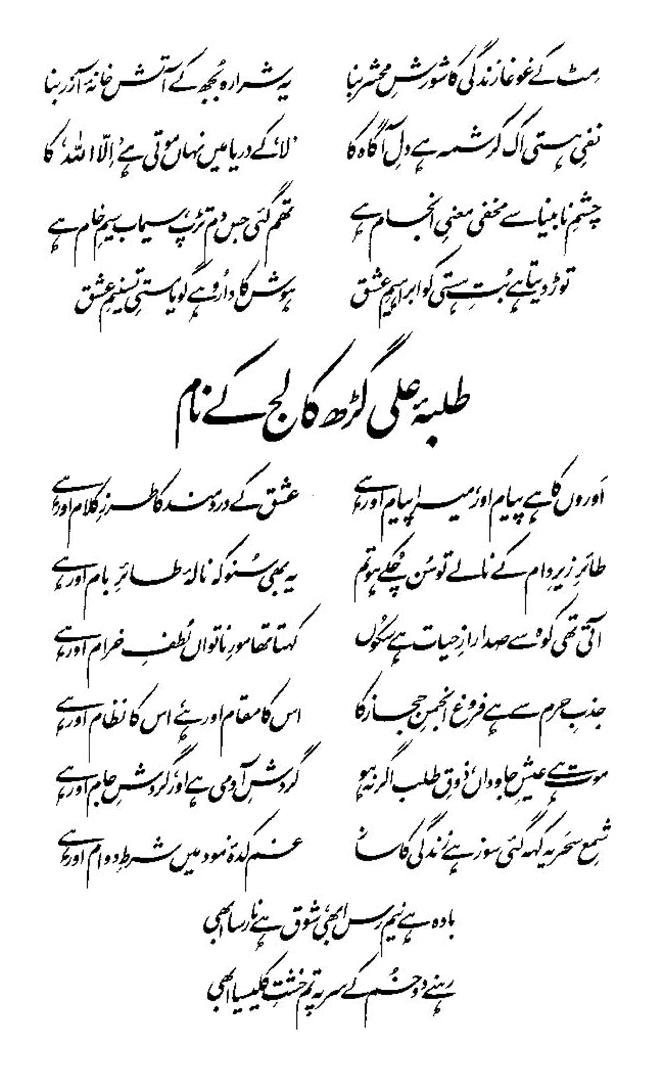 مٹ کے غوغا زندگی کا شورشِ محشر بنا یہ شرارہ بُجھ کے آتش خانۂ آزر بنا
نفیِ ہستی اک کرشمہ ہے دلِ آگاہ کا ’لا‘ کے دریا میں نہاں موتی ہے ’اِلّا اللہ‘ کا
چشمِ نابینا سے مخفی معنیِ انجام ہے تھم گئی جس دم تڑپ، سیماب سیمِ خام ہے
توڑ دیتا ہے بُتِ ہستی کو ابراہیمِ عشق ہوش کا دارُو ہے گویا مستیِ تسنیمِ عشق
طلبۂ علی گڑھ کالج کے نام
اَوروں کا ہے پیام اور، میرا پیام اور ہے عشق کے دردمند کا طرزِ کلام اور ہے
طائرِ زیرِ دام کے نالے تو سُن چُکے ہو تم یہ بھی سُنو کہ نالۂ طائرِ بام اور ہے
آتی تھی کوہ سے صدا رازِ حیات ہے سکُوں کہتا تھا مورِ ناتواں لُطفِ خرام اور ہے
جذبِ حرم سے ہے فروغ انجمنِ حجاز کا اس کا مقام اور ہے، اس کا نظام اور ہے
موت ہے عیشِ جاوداں، ذوقِ طلب اگر نہ ہو گردشِ آدمی ہے اور، گردشِ جام اور ہے
شمعِ سحَر یہ کہہ گئی سوز ہے زندگی کا ساز غم کدۂ نمود میں شرطِ دوام اور ہے
بادہ ہے نیم رس ابھی، شوق ہے نارسا ابھی
رہنے دو خُم کے سر پہ تم خشتِ کلیسیا ابھی